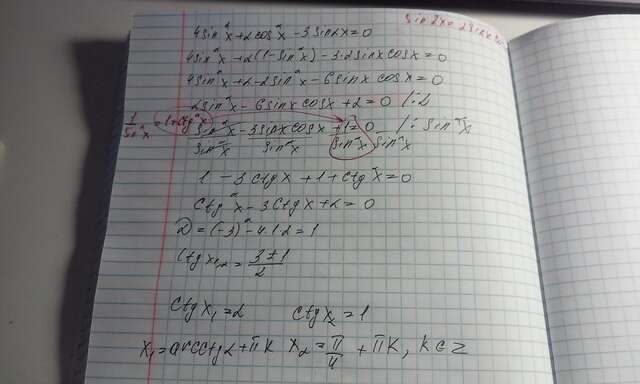 sin2x = 2sinx
4sin²x+2cos²x-3sin2x=0
4sin²x+2(1-sin²x)-3·2sinxcosx=0
4sin²x+2-2sin²x-6sinx cosx=0
2sin²x-6sinxcosx+2=0 /:2
1/sin²x=1+ctg²x
sin²x/sin²x-3sinxcosx/sin²x+1/sin²x=0/sin²x /:sin²x
1-3ctgx+1+ctg²x=0
ctg²x-3ctgx+2=0
D=(-3)²-4·1·2=1
ctgx₁,₂=3±1/2
ctgx₁=2 ctgx₂=1
x₁=arcctg2+πk x₂=π/4+πk, k∈z